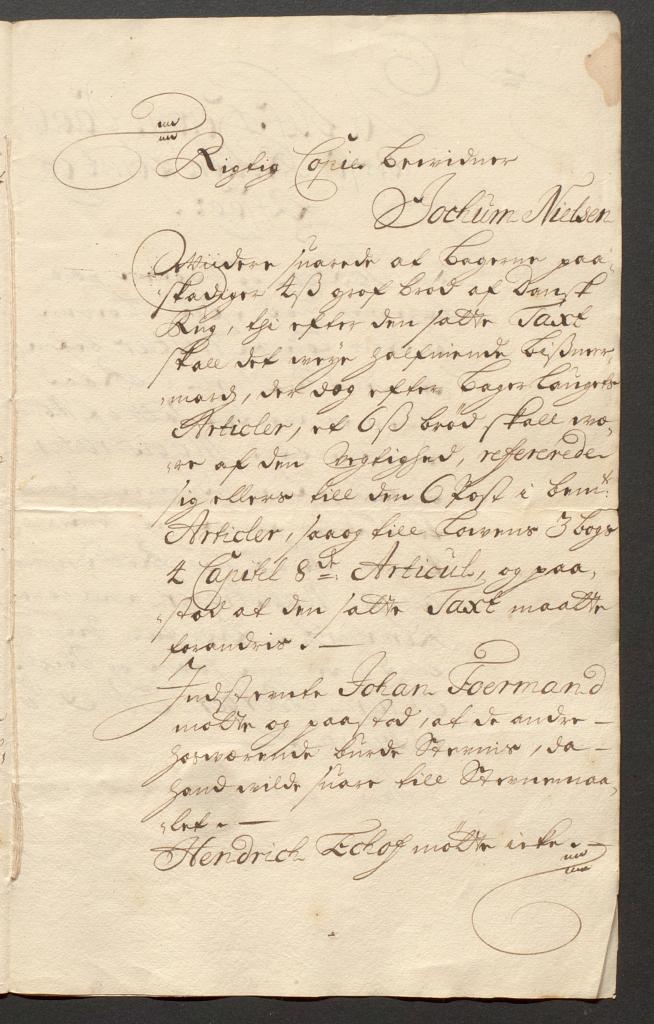 Rigtig Copie bevidner
Jochum Nielsen
Widere svarede at bagerne paa
skadiger 4ß grof brød af Dansk
Rug, thi efter den satte Taxt
skall det weye halfniende bißmer
mard, der dog efter bagerlaugets
Articler, et 6ß brød skall wæ,,
,,re af den wegtighed, refererede
sig ellers till den 6 Post i bemte:
Articler, saaog till Lowens 3 bogs
4 Capitel 8de: Articul, og paa,,
,,stod at den satte Taxt maatte
forandris. —
Indstevnte Johan Foermand
møtte og paastod, at de andre —
hosværende burde Stevnis, da —
hand wilde svare till Stevnemaa,,
,,let. —
Hendrich Echof møtte icke. —